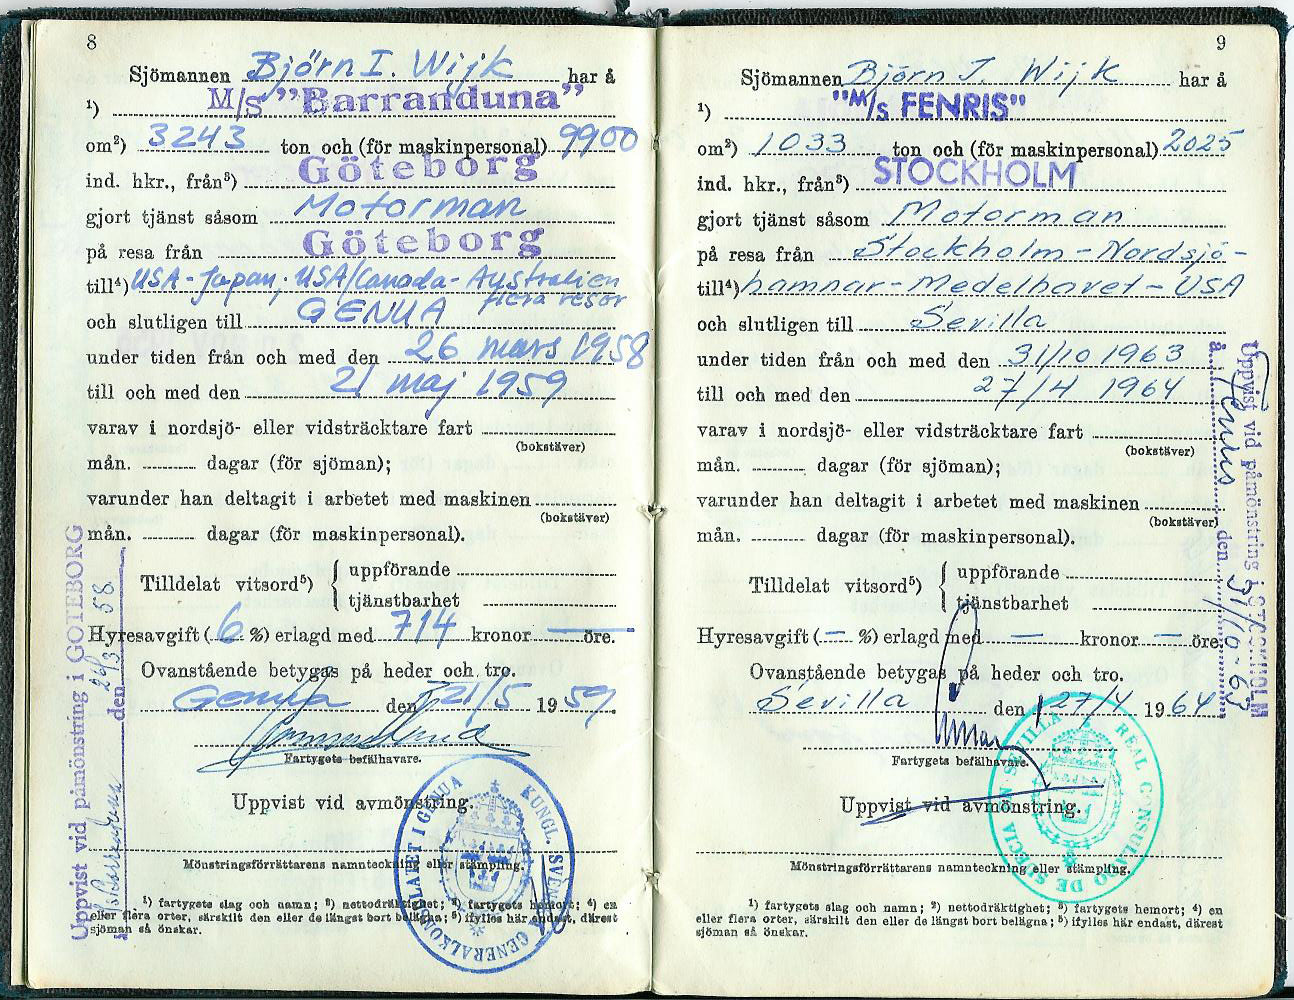 8
Sjömannen Björn I. Wijk har å
¹) M/s "Barranduna"
om²) 3243 ton och (för maskinpersonal) 9900
ind. hkr., från³) Göteborg
gjort tjänst såsom Motorman
på resa från Göteborg
till⁴) USA-Japan, USA/Canada-Australien
flera resor
och slutligen till GENUA
under tiden från och med den 26 mars 1958
till och med den 21 maj 1959
varav i nordsjö- eller vidsträcktare fart
(bokstäver)
mån. dagar (för sjöman);
varunder han deltagit i arbetet med maskinen
(bokstäver)
mån. dagar (för maskinpersonal).
Tilldelat vitsord⁵) { uppförande
tjänstbarhet
Hyresavgift (6 %) erlagd med 714 kronor — öre.
Ovanstående betygas på heder och tro.
Genua den 21/5 1959
Fartygets befälhavare.
Uppvist vid avmönstring.
Mönstringsförrättarens namnteckning eller stämpling.
¹) fartygets slag och namn; ²) nettodräktighet; ³) fartygets hemort; ⁴) en
eller flera orter, särskilt den eller de längst bort belägna; ⁵) ifylles här endast, därest
sjöman så önskar.
Uppvist vid påmönstring i GÖTEBORG
å M/s Barranduna den 26/3 58.
KUNGL. SVENSKA GENERALKONSULATET I GENUA
9
Sjömannen Björn I. Wijk har å
¹) "M/s FENRIS"
om²) 1033 ton och (för maskinpersonal) 2025
ind. hkr., från³) STOCKHOLM
gjort tjänst såsom Motorman
på resa från Stockholm-Nordsjö-
till⁴) hamnar-Medelhavet-USA
och slutligen till Sevilla
under tiden från och med den 31/10 1963
till och med den 27/4 1964
varav i nordsjö- eller vidsträcktare fart
(bokstäver)
mån. dagar (för sjöman);
varunder han deltagit i arbetet med maskinen
(bokstäver)
mån. dagar (för maskinpersonal).
Tilldelat vitsord⁵) { uppförande
tjänstbarhet
Hyresavgift (— %) erlagd med — kronor — öre.
Ovanstående betygas på heder och tro.
Sevilla den 27/4 1964
Fartygets befälhavare.
Uppvist vid avmönstring.
Mönstringsförrättarens namnteckning eller stämpling.
¹) fartygets slag och namn; ²) nettodräktighet; ³) fartygets hemort; ⁴) en
eller flera orter, särskilt den eller de längst bort belägna; ⁵) ifylles här endast, därest
sjöman så önskar.
Uppvist vid påmönstring i STOCKHOLM
å Fenris den 31/10-63
REAL CONSULADO DE SUECIA EN SEVILLA